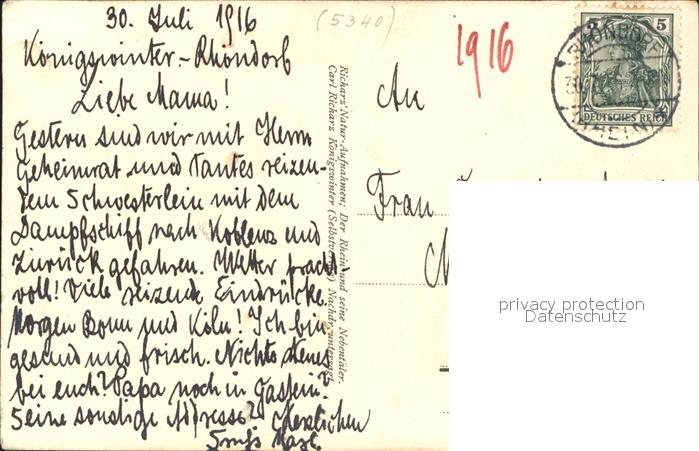 30. Juli 1916
(5340)
Königswinter-Rhöndorf
Liebe Mama!
Gestern sind wir mit Herrn
Geheimrat und Tantes reizen-
dem Schwesterlein mit dem
Dampfschiff nach Koblenz und
zurück gefahren. Wetter pracht
voll! Viele reizende Eindrücke.
Morgen Bonn und Köln! Ich bin
gesund und frisch. Nichts
bei euch? Papa noch in Gastein?
Seine sonstige Adresse? Herzlichen
Gruß
Richarz' Natur-Aufnahmen; Der Rhein und seine Nebentäler.
Carl Richarz Königswinter (Selbstverlag) Nachdr. untersagt
1916
An
Frau
5
RHÖNDORF
(RHEIN)
DEUTSCHES REICH
privacy protection
Datenschutz